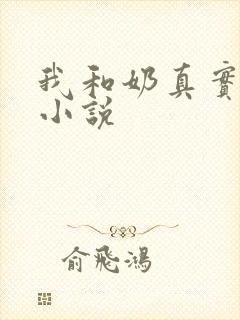 我和奶真實
小説
俞飛鴻